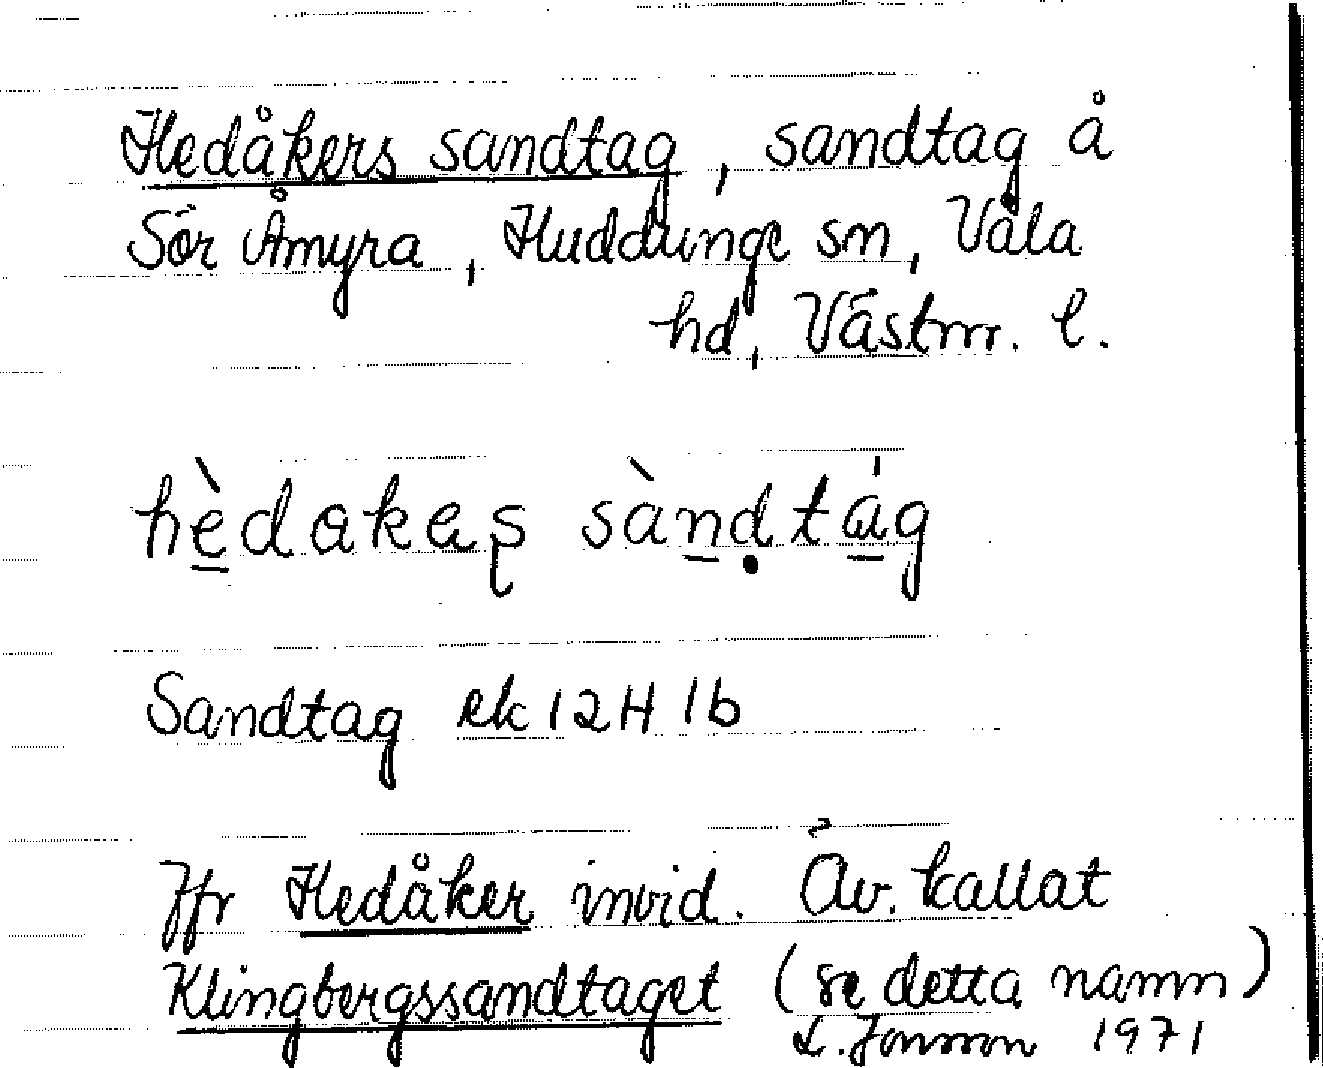 Hedåkers sandtag, sandtag å
Sör Åmyra, Huddunge sn, Våla
hd, Västm. l.
hèdakaʂ sàndtág
Sandtag ek 12H 1b
Jfr Hedåker invid. Äv. kallat
Klingbergssandtaget (se detta namn)
L. Jonsson 1971